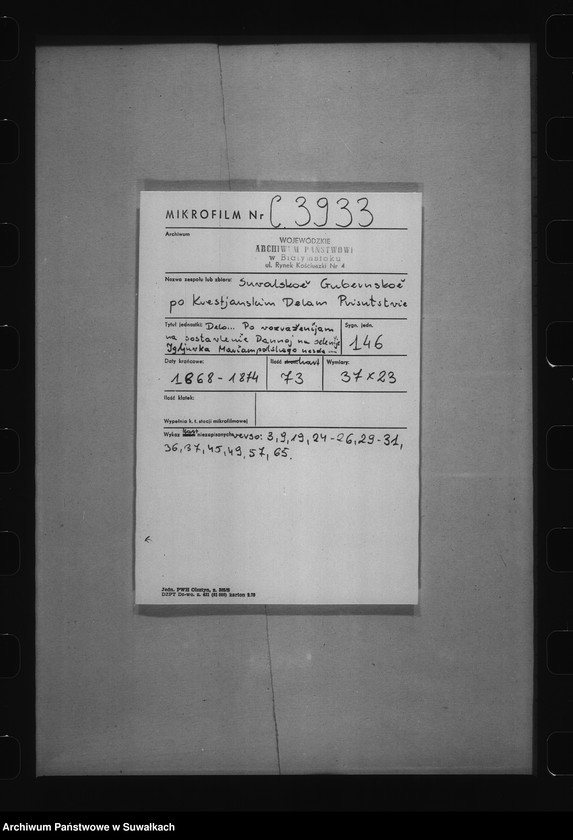 MIKROFILM Nr C. 3933
Archiwum
WOJEWÓDZKIE
ARCHIWUM PAŃSTWOWE
w Białymstoku
ul. Rynek Kościuszki Nr 4
Nazwa zespołu lub zbioru: Suvalskoě Gubernskoě
po Krestjanskim Delam Prisutstvie
Tytuł jednostki: Delo... Po vozraženijam
na sostavlenie Dannoj na selenie
Iglĭuvka Mariampolskogo uezda
Sygn. jedn.
146
Daty krańcowe:
1868-1874
Ilość kart
73
Wymiary:
37x23
Ilość klatek:
Wypełnia k. t. stacji mikrofilmowej
Wykaz kart niezapisanych verso: 3, 9, 19, 24-26, 29-31,
36, 37, 45, 49, 57, 65.
Jedn. PWH Olsztyn, z.
Archiwum Państwowe w Suwałkach